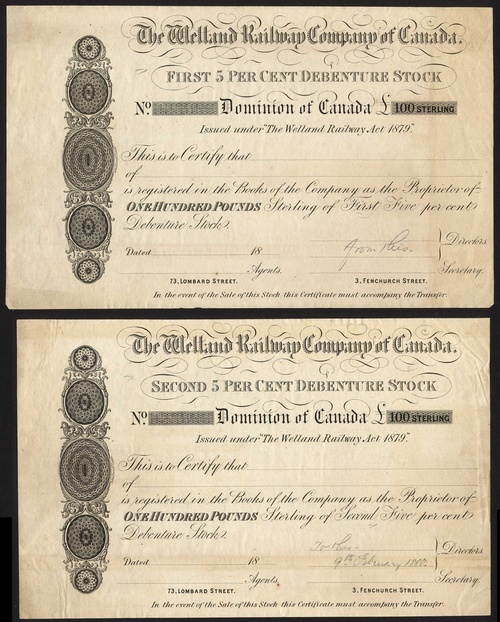 The Welland Railway Company of Canada.
FIRST 5 PER CENT DEBENTURE STOCK
No Dominion of Canada £ 100 STERLING
Issued under "The Welland Railway Act 1879".
This is to Certify that
of
is registered in the Books of the Company as the Proprietor of
ONE HUNDRED POUNDS Sterling of First Five per cent
Debenture Stock.
from this
Directors.
Dated 18
Agents. Secretary.
73, LOMBARD STREET. 3, FENCHURCH STREET.
In the event of the Sale of this Stock this Certificate must accompany the Transfer.
The Welland Railway Company of Canada.
SECOND 5 PER CENT DEBENTURE STOCK
No Dominion of Canada £ 100 STERLING
Issued under "The Welland Railway Act 1879".
This is to Certify that
of
is registered in the Books of the Company as the Proprietor of
ONE HUNDRED POUNDS Sterling of Second Five per cent
Debenture Stock.
To this
Directors.
Dated 18 9th February
Agents. Secretary.
73, LOMBARD STREET. 3, FENCHURCH STREET.
In the event of the Sale of this Stock this Certificate must accompany the Transfer.